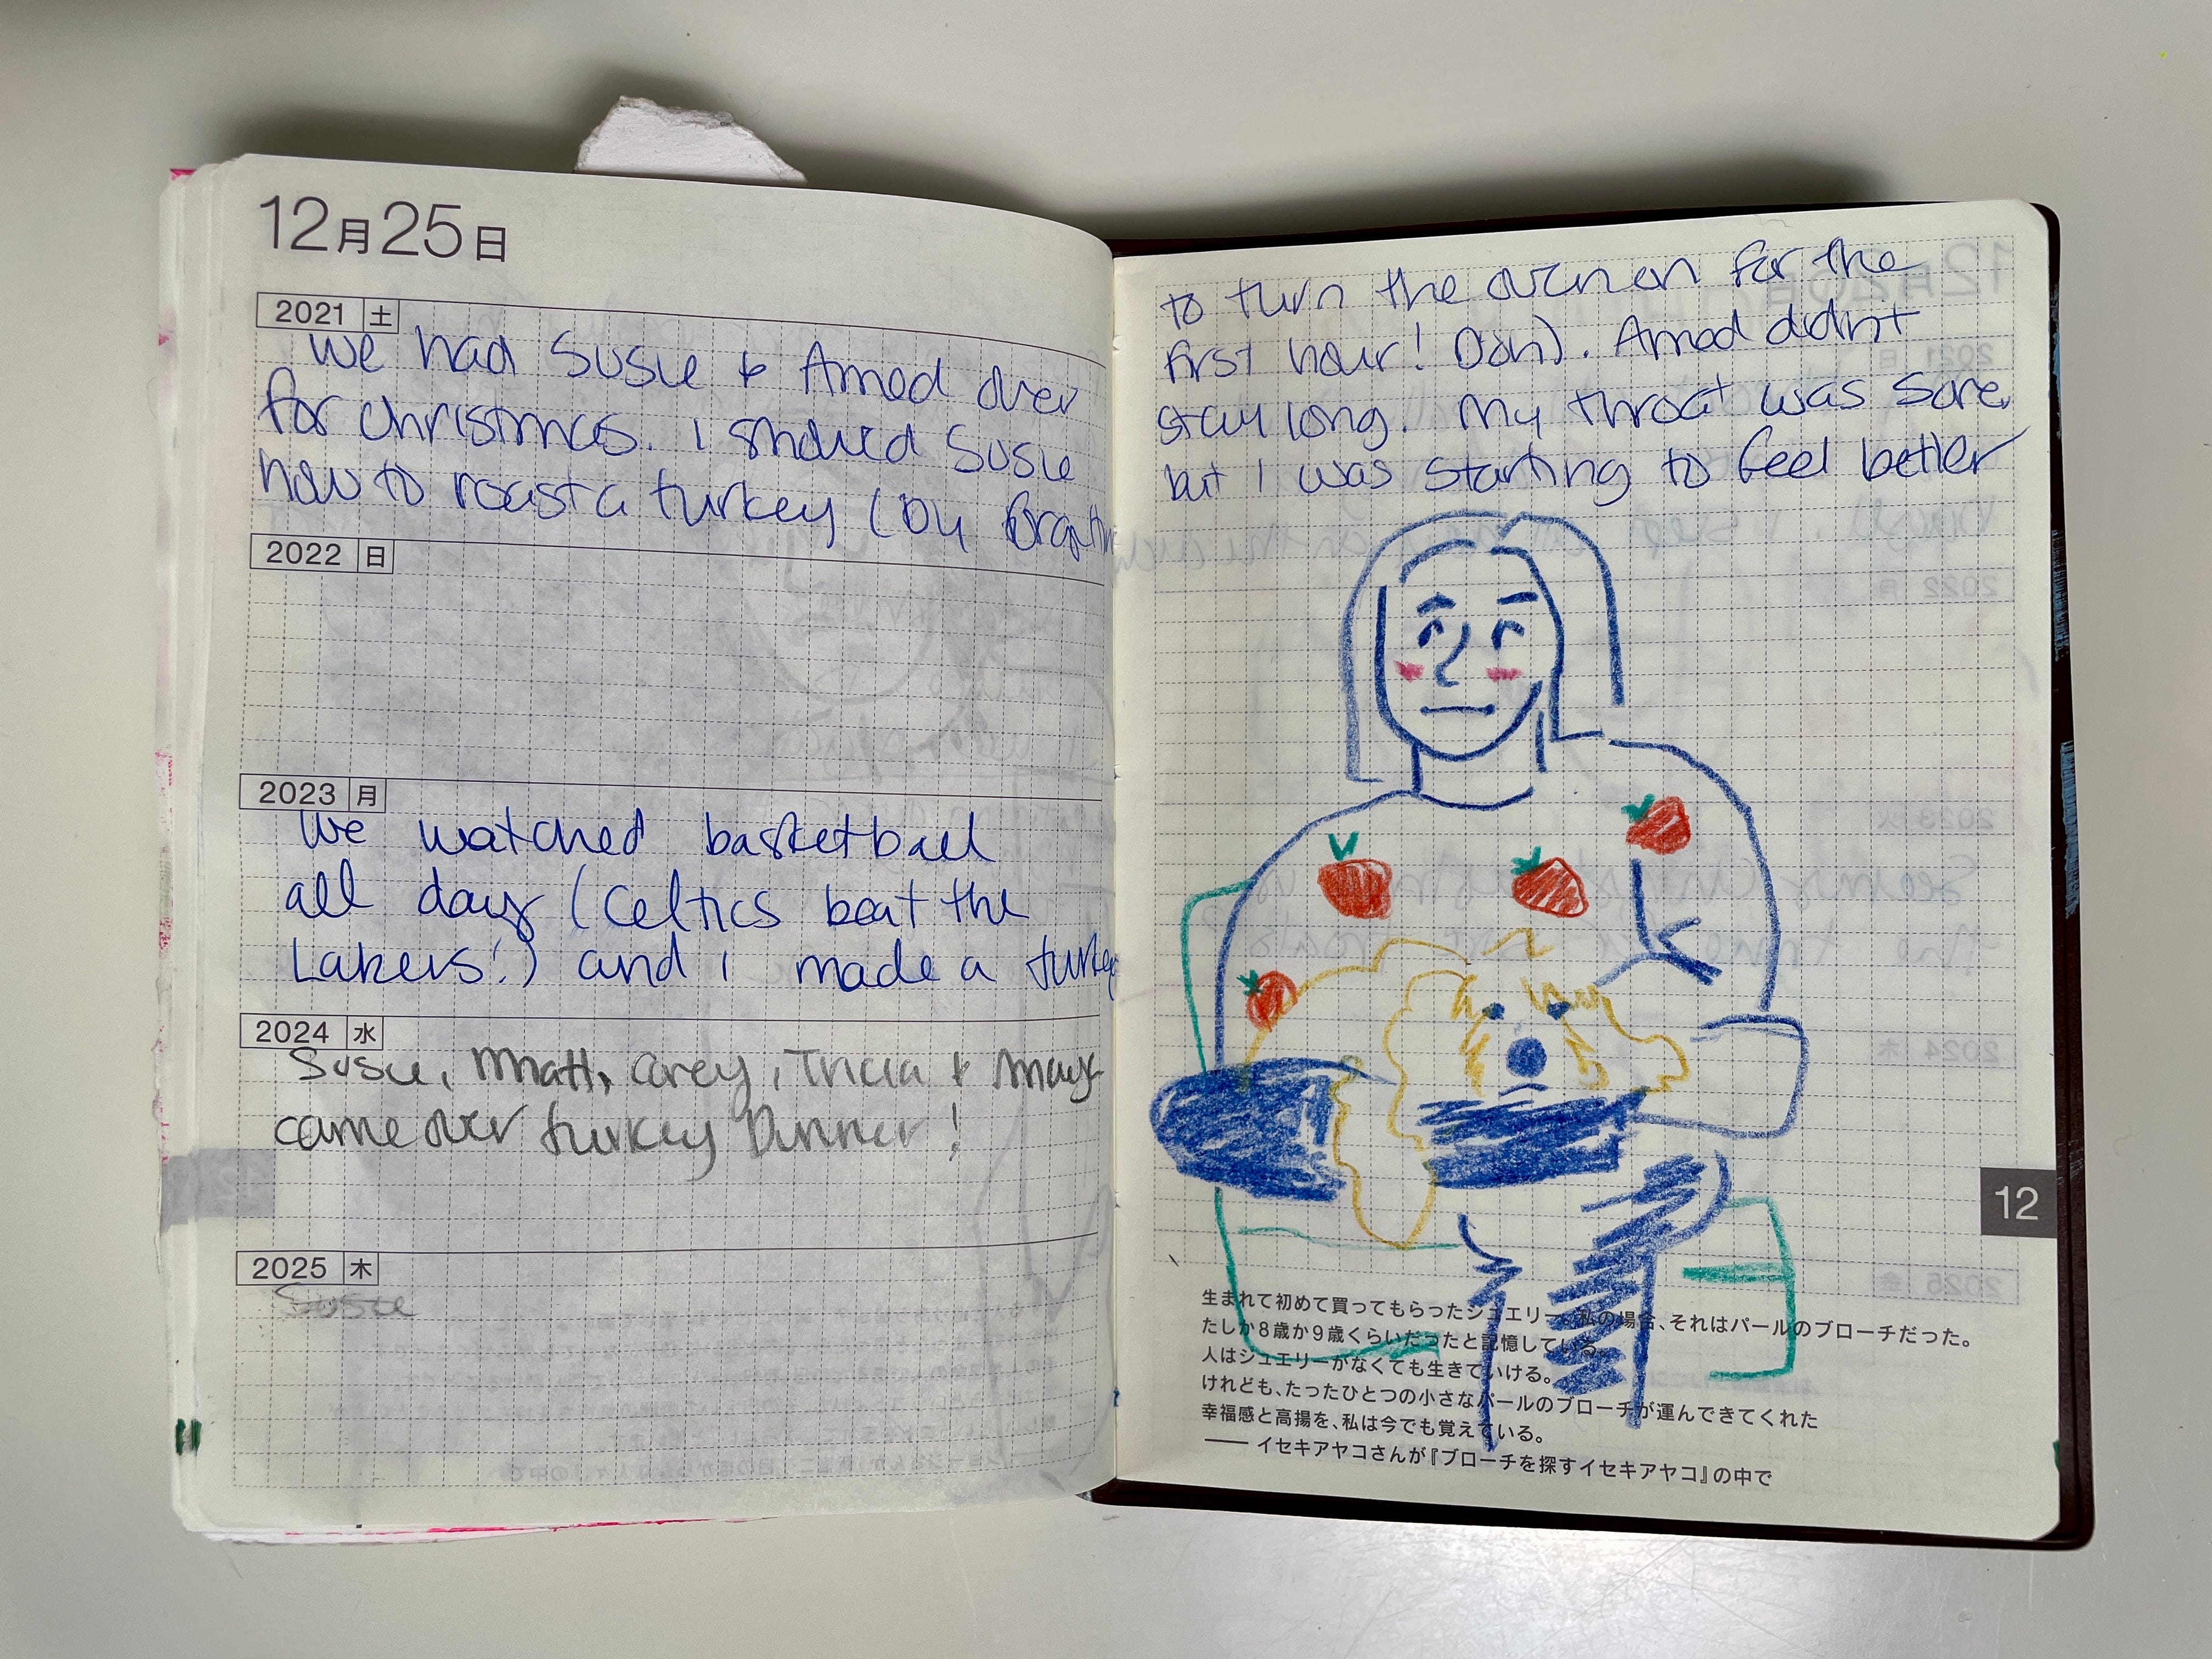 12月25日
2021 土
We had Susie & Amod over
for christmas. I showed Susie
how to roast a turkey (by forgetting
2022 日
2023 月
We watched basketball
all day (Celtics beat the
Lakers!) and I made a turkey
2024 水
Susie, Matt, Corey, Tricia & Mary
came over turkey Dinner!
2025 木
Susie
to turn the oven on for the
first hour! Doh). Amod didn't
stay long. My throat was sore,
but I was starting to feel better
12
生まれて初めて買ってもらったジュエリー。私の場合、それはパールのブローチだった。
たしか8歳か9歳くらいだったと記憶している。
人はジュエリーがなくても生きていける。
けれども、たったひとつの小さなパールのブローチが運んできてくれた
幸福感と高揚を、私は今でも覚えている。
—— イセキアヤコさんが『ブローチを探すイセキアヤコ』の中で